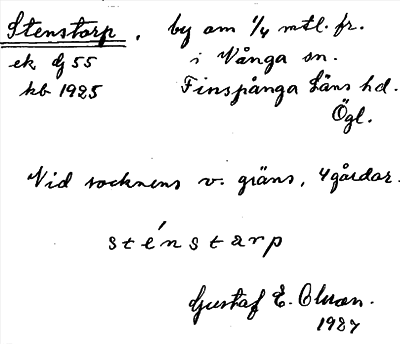 Stenstorp, by om 1/4 mtl. fr.
ek G 55 i Vånga sn.
kb 1925 Finspånga Läns hd.
Ögl.
Vid socknens v. gräns, 4 gårdar.
sténstarp
Gustaf E. Olsson.
1927